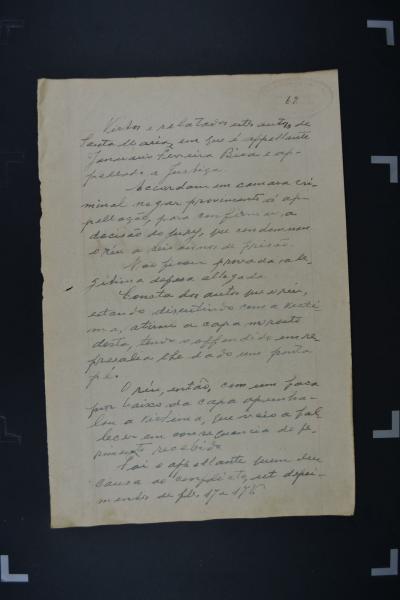 62
Vistos e relatados estes autos de
Santa Maria, em que é appellante
Januario Pereira Bica e ap-
pellada a Justiça.
Accordam em camara cri-
minal negar provimento á ap-
pellação, para confirmar a
decisão do jury, que condemnou
o réu a seis annos de prisão.
Não ficou provada a le-
gitima defesa allegada.
Consta dos autos que o réu,
estando discutindo com a victi-
ma, atirou a capa no rosto
desta, tendo o offendido em re-
presalia lhe dado um ponta
pé.
O réu, então, com uma faca
por baixo da capa apunha-
lou a victima, que veio a fal-
lecer em consequencia do fe-
rimento recebido.
Foi o appellante quem deu
causa ao conflicto, depoi-
mentos de fls. 17 e 17v